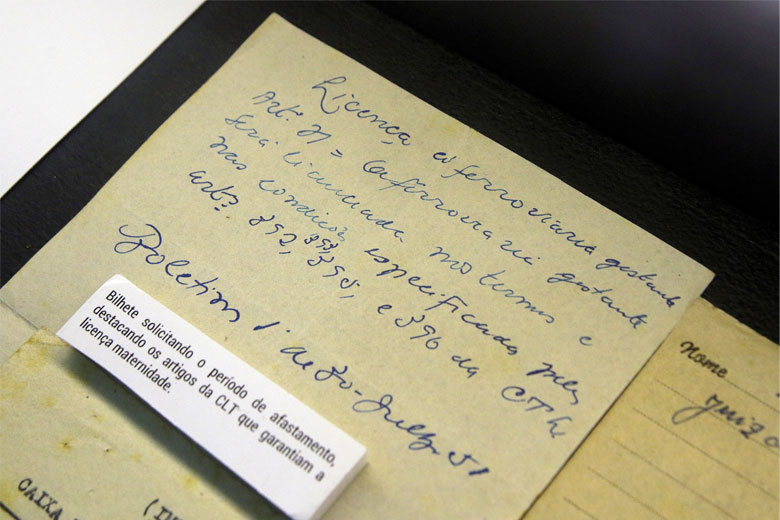 Licença a ferroviaria gestante
Art. 71 = A ferroviaria gestante
Será licenciada nos termos e
nas condições especificadas pelos
artºs 392, 393, 394, e 396 da CTL
Boletim 1 de 30-Julho-51
Bilhete solicitando o período de afastamento,
destacando os artigos da CLT que garantiam a
licença maternidade.
Nome
Juizo
CAIXA